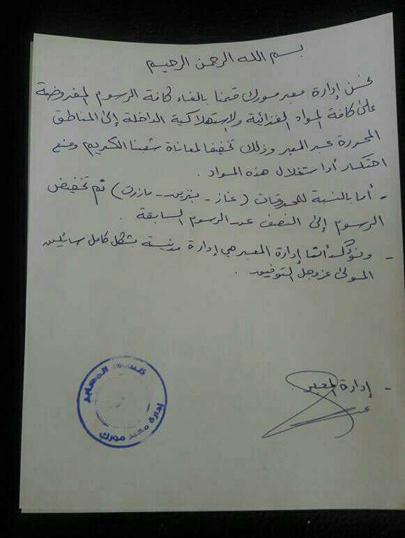 بسم الله الرحمن الرحيم
نحن إدارة معبر مورك قمنا بالغاء كافة الرسوم المفروضة
على كافة المواد الغذائية والاستهلاكية الداخلة إلى المناطق
المحررة عبر المعبر وذلك تخفيفا لمعاناة شعبنا الكريم ومنع
احتكار أو استغلال هذه المواد .
- أما بالنسبة للمحروقات (غاز - بنزين - مازوت) تم تخفيض
الرسوم إلى النصف عن الرسوم السابقة .
- ونؤكد أن إدارة المعبر هي إدارة مدنية بشكل كامل سائلين
المولى عز وجل التوفيق .
- إدارة المعبر
إدارة معبر مورك